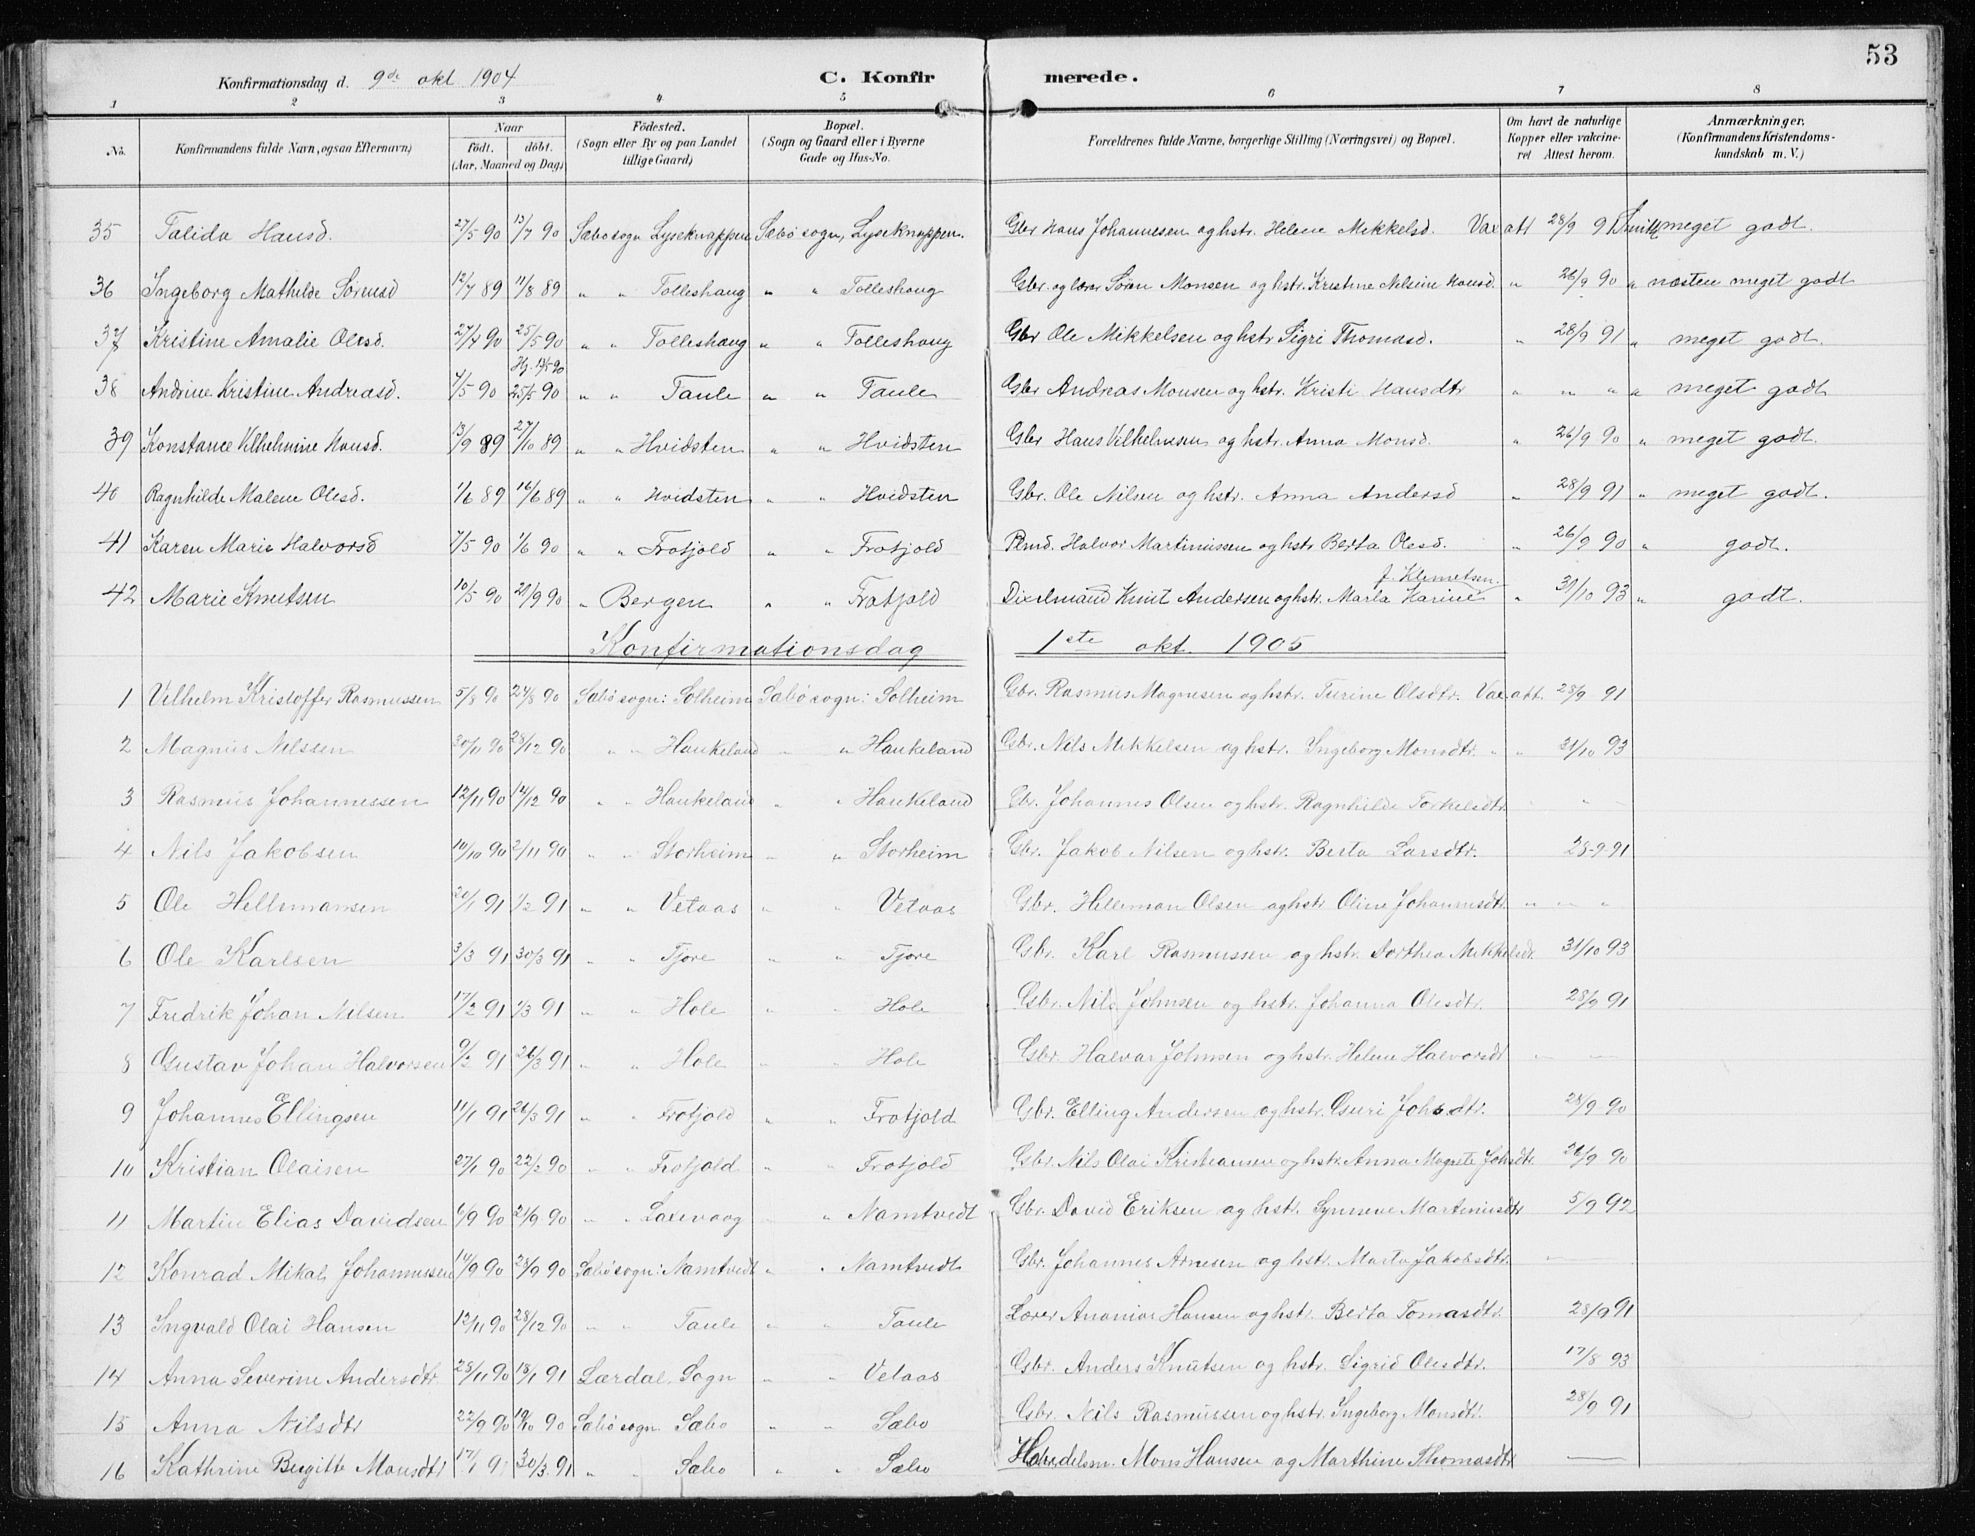 53
Konfirmationsdag d. 9de okt 1904 C. Konfirmerede.
1 2 3 4 5 6 7 8
No. Konfirmandens fulde Navn, ogsaa Efternavn) Naar födt. döbt. (Aar, Maaned og Dag) Födested. (Sogn eller By og paa Landet tillige Gaard) Bopæl. (Sogn og Gaard eller i Byerne Gade og Hus-No. Forældrenes fulde Navne, borgerlige Stilling (Næringsvei) og Bopæl. Om havt de naturlige Kopper eller vakcineret Attest herom. Anmærkninger. (Konfirmandens Kristendomskundskab m. V.)
35 Talida Hansd. 27/5 90 13/7 90 Sæbø sogn Lyseknappen Sæbø sogn, Lyseknappen. Gbr Hans Johannesen og hstr. Helene Mekkelsd. Vax att 28/9 91 meget godt.
36 Ingeborg Mathilde Sørensd 12/7 89 11/8 89 " " Tolleshaug " " Tolleshaug Gbr. og lærer Søren Monsen og hstr. Kristine Nilsine Hansd. " 26/9 90 " næsten meget godt
37 Kristine Amalie Olesd. 27/4 90 25/5 90 " " Tolleshaug " " Tolleshaug Gbr Ole Mikkelsen og hstr Sigri Thomasd. " 28/9 91 " meget godt.
38 Andrine Kristine Andreasd. 4/5 90 25/5 90 " " Taule " " Taule Gbr Andreas Monsen og hstr. Kristi Hansdtr " " " " meget godt
39 Konstance Vilhelmine Hansd. 13/9 89 27/10 89 " " Hvidsten " " Hvidsten Gbr Hans Vilhelmsen og hstr. Anna Monsd. " 26/9 90 " meget godt.
40 Ragnhilde Malene Olesd. 1/6 89 16/6 89 " " Hvidsten " " Hvidsten Gbr. Ole Nilsen og hstr. Anna Andersd " 28/9 91 " meget godt.
41 Karen Marie Halvorsd 7/5 90 1/6 90 " " Frotjold " " Frotjold Plmd. Halvor Martinussen og hstr Berta Olesd. " 26/9 90 " godt.
42 Marie Knutsen 10/5 90 21/9 90 " Bergen " " Frotjold Dixelmand Knut Andersen og hstr. Marta Karine f. Klemetsen. " 31/10 93 " godt.
Konfirmationsdag 1ste okt. 1905
1 Vilhelm Kristoffer Rasmussen 5/8 90 24/8 90 Sæbø sogn: Solheim Sæbø sogn: Solheim Gbr. Rasmus Magnesen og hstr. Turine Olsdtr. Vax. att. 28/9 91
2 Magnus Nilssen 30/11 90 28/12 90 " " Haukeland " " Haukeland Gbr. Nils Mikkelsen og hstr. Ingeborg Monsdtr. " " 31/10 93
3 Rasmus Johannessen 12/11 90 14/12 90 " " Haukeland " " Haukeland Gbr. Johannes Olsen og hstr. Ragnhilde Torkelsdtr. " " "
4 Nils Jakobsen 10/10 90 2/11 90 " " Storheim " " Storheim Gbr. Jakob Nilsen og hstr. Berta Larsdtr. 28-9-91
5 Ole Hellemansen 20/1 91 1/2 91 " " Vetaas " " Vetaas Gbr. Helleman Olsen og hstr Oline Johannesdtr. " " "
6 Ole Karlsen 3/3 91 30/3 91 " " Tjore " " Tjore Gbr. Karl Rasmussen og hstr. Dorthea Mekkelsdtr. 31/10 93
7 Fredrik Johan Nilsen 17/2 91 1/3 91 " " Hole " " Hole Gbr. Nils Johnsen og hstr. Johanna Olesdtr. 28/9 91
8 Gustav Johan Halvorsen 9/2 91 26/3 91 " " Hole " " Hole Gbr. Halvar Johnsen og hstr. Helene Halvorsdt
9 Johannes Ellingsen 11/1 91 26/3 91 " " Frotjold " " Frotjold Gbr. Elling Andersen og hstr. Guri Johsdtr. 28/9 90
10 Kristian Olaisen 27/1 90 22/2 90 " " Frotjold " " Frotjold Gbr. Nils Olai Kristiansen og hstr. Anna Magrete Johsdtr. 26/9 90
11 Martin Elias Davidsen 6/9 90 21/9 90 " " Laxevaag " " Namtvedt Gbr. David Eriksen og hstr. Synneve Martinusdtr 5/9 92
12 Konrad Mikal Johannessen 14/9 90 28/9 90 Sæbø sogn: Namtvedt " " Namtvedt Gbr. Johannes Arnesen og hstr. Marta Jakobsdtr.
13 Ingvald Olai Hansen 12/11 90 28/12 90 " " Taule " " Taule Lærer Ananias Hansen og hstr. Berta Tomasdtr. 28/9 91
14 Anna Severine Andersdtr. 25/11 90 18/1 91 Lærdal. Sogn " " Vetaas Gbr. Anders Knutsen og hstr. Sigrid Olesdtr. 17/8 93
15 Anna Nilsdtr 22/9 90 19/10 90 Sæbø sogn. Sæbo " " Sæbo Gbr. Nils Rasmussen og hstr. Ingeborg Monsdtr. 28/9 91
16 Kathrine Birgitte Monsdtr 17/1 91 30/3. 91 " " Sæbo " " Sæbo Handelsm. Mons Hansen og Marthine Thomasdtr